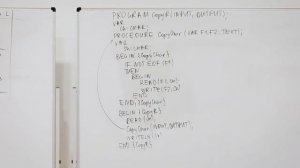 PROGRAM CopyR(INPUT, OUTPUT);
VAR
Ch: CHAR;
PROCEDURE CopyChar (VAR F1,F2: TEXT);
VAR
Ch: CHAR;
BEGIN {CopyChar}
IF NOT EOF (F1)
THEN
BEGIN
READ(F1,Ch);
WRITE(F2,Ch)
END
END; {CopyChar}
BEGIN {CopyR}
READ(Ch);
CopyChar(INPUT,OUTPUT);
WRITELN(Ch)
END. {CopyR}